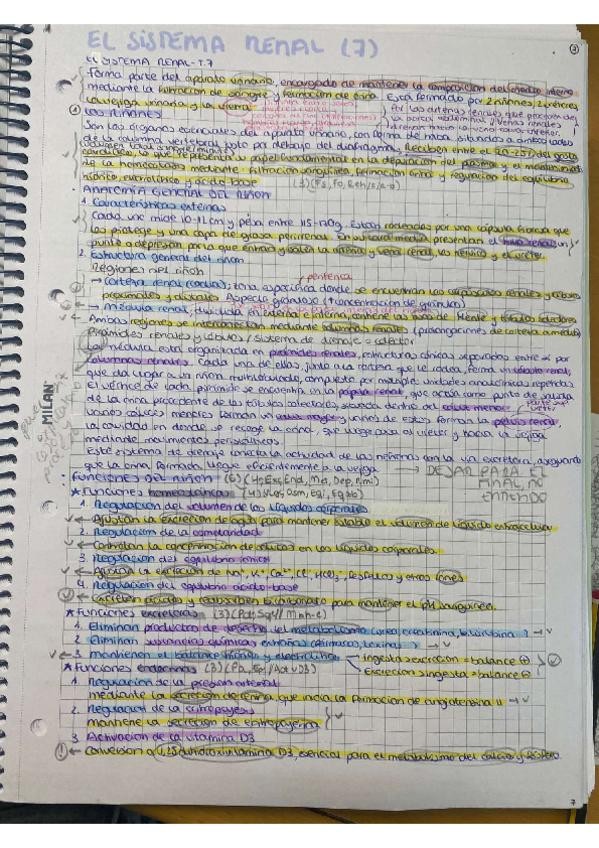 EL SISTEMA RENAL (7)
EL SISTEMA RENAL - T.7
Forma parte del aparato urinario, encargado de mantener la composición del medio interno
mediante la filtración de sangre y formación de orina. Está formado por 2 riñones, 2 uréteres,
la vejiga urinaria y la uretra
LOS RIÑONES
Son los órganos esenciales del aparato urinario, con forma de haba situados a ambos lados
de la columna vertebral justo por debajo del diafragma. Reciben entre el 20-25% del gasto
cardíaco, lo que representa su papel fundamental en la depuración del plasma y el mantenimiento
de la homeostasis mediante: filtración sanguínea, formación orina y regulación del equilibrio
hídrico, electrolítico y ácido-base
ANATOMÍA GENERAL DEL RIÑÓN
1. Características externas
Cada uno mide 10-12cm y pesa entre 115-170g. Están rodeados por una cápsula fibrosa que
los protege y una capa de grasa perirrenal. En su cara media presentan el hilio renal, un
punto o depresión por la que entran y salen la arteria y vena renal, los nervios y el uréter.
2. Estructura general del riñón
Regiones del riñón
periférica
→ Corteza renal (cortical): zona específica donde se encuentran los corpúsculos renales y túbulos
proximales y distales. Aspecto granuloso
→ Médula renal: dividida en externa e interna, contiene las asas de Henle y túbulos colectores
Ambas regiones se interconectan mediante columnas renales (prolongaciones de corteza a médula)
Pirámides renales y cálices / Sistema de drenaje = colector
La médula está organizada en pirámides renales, estructuras cónicas separadas entre sí por
columnas renales. Cada una de ellas, junto a la corteza que le rodea, forma un lóbulo renal,
que da lugar a un riñón multilobulado, compuesto por múltiples unidades anatómicas repetidas
El vértice de cada pirámide se encuentra en la papila renal, que actúa como punto de salida
de la orina procedente de los túbulos colectores, situada dentro del cáliz menor.
Varios cálices menores forman un cáliz mayor y varios de estos forman la pelvis renal,
la cavidad en donde se recoge la orina, que luego pasa al uréter y hacia la vejiga
mediante movimientos peristálticos.
Este sistema de drenaje conecta la actividad de las nefronas con la vía excretora, asegurando
que la orina formada llegue eficientemente a la vejiga
→ DEJAR PARA EL
FINAL, NO
ENTIENDO
MILAN
FUNCIONES DEL RIÑÓN (6)
★ Funciones homeostáticas (4)
1. Regulación del volumen de los líquidos corporales
Ajustan la excreción de agua para mantener estable el volumen de líquido extracelular
2. Regulación de la osmolaridad
Controlan la concentración de solutos en los líquidos corporales
3. Regulación del equilibrio iónico
Ajustan la excreción de Na⁺, K⁺, Ca²⁺, Cl⁻, HCO₃⁻, fosfatos y otros iones
4. Regulación del equilibrio ácido-base
Excretan ácidos y reabsorben bicarbonato para mantener el pH sanguíneo.
★ Funciones excretoras (3)
1. Eliminan productos de desecho del metabolismo (urea, creatinina, bilirrubina)
2. Eliminan sustancias químicas extrañas (fármacos, toxinas)
3. Mantienen el balance hídrico y electrolítico
Ingesta > excreción = balance ⊕
Excreción > ingesta = balance ⊖
★ Funciones endocrinas (3)
1. Regulación de la presión arterial
mediante la secreción de renina que inicia la formación de angiotensina II
2. Regulación de la eritropoyesis
mantiene la secreción de eritropoyetina
3. Activación de la vitamina D3
Conversión a 1,25 dihidroxivitamina D3, esencial para el metabolismo del calcio y fósforo
7